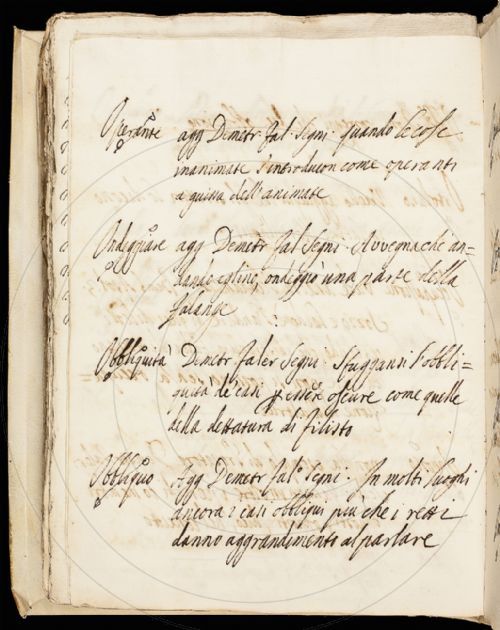 Operante agg Demetr fal. Segni. quando le cose
inanimate s'introducon come operanti
a guisa dell'animate
Ondeggiare agg Demetr fal Segni. Avvegnache an=
dando eglino, ondeggiò una parte della
falange
Obbliquità Demetr faler Segni. Sfuggansi l'obbli=
quità de casi oscure come quelle
della dettatura di filisto
Obbliquo Agg Demetr fal.o Segni. In molti luoghi
ancora i casi obbliqui più che i retti
danno aggrandimento al parlare